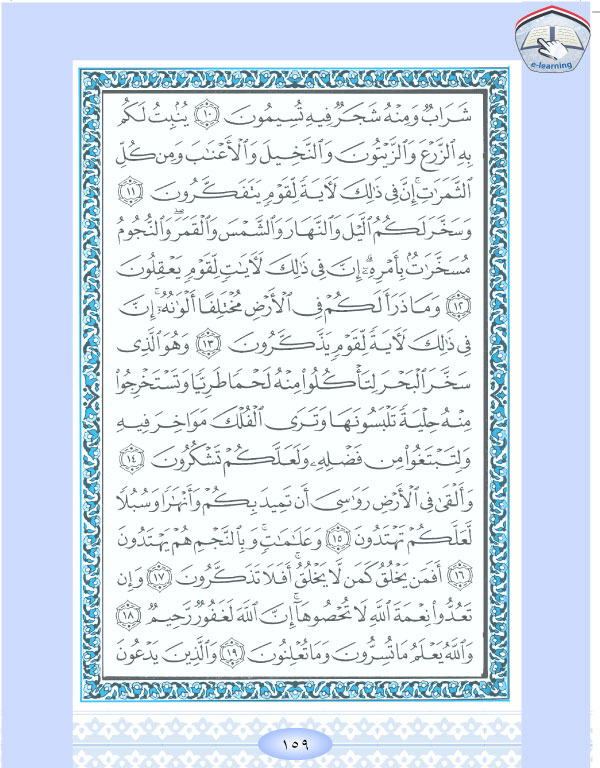 e-learning
شَرَابٌ وَمِنْهُ شَجَرٌ فِيهِ تُسِيمُونَ ١٠ يُنۢبِتُ لَكُم
بِهِ ٱلزَّرْعَ وَٱلزَّيْتُونَ وَٱلنَّخِيلَ وَٱلْأَعْنَٰبَ وَمِن كُلِّ
ٱلثَّمَرَٰتِ ۗ إِنَّ فِى ذَٰلِكَ لَأٓيَةً لِّقَوْمٍ يَتَفَكَّرُونَ ١١
وَسَخَّرَ لَكُمُ ٱلَّيْلَ وَٱلنَّهَارَ وَٱلشَّمْسَ وَٱلْقَمَرَ ۖ وَٱلنُّجُومُ
مُسَخَّرَٰتٌۢ بِأَمْرِهِۦٓ ۗ إِنَّ فِى ذَٰلِكَ لَأٓيَٰتٍ لِّقَوْمٍ يَعْقِلُونَ
١٢ وَمَا ذَرَأَ لَكُمْ فِى ٱلْأَرْضِ مُخْتَلِفًا أَلْوَٰنُهُۥٓ ۗ إِنَّ
فِى ذَٰلِكَ لَأٓيَةً لِّقَوْمٍ يَذَّكَّرُونَ ١٣ وَهُوَ ٱلَّذِى
سَخَّرَ ٱلْبَحْرَ لِتَأْكُلُوا۟ مِنْهُ لَحْمًا طَرِيًّا وَتَسْتَخْرِجُوا۟
مِنْهُ حِلْيَةً تَلْبَسُونَهَا وَتَرَى ٱلْفُلْكَ مَوَاخِرَ فِيهِ
وَلِتَبْتَغُوا۟ مِن فَضْلِهِۦ وَلَعَلَّكُمْ تَشْكُرُونَ ١٤
وَأَلْقَىٰ فِى ٱلْأَرْضِ رَوَٰسِىَ أَن تَمِيدَ بِكُمْ وَأَنْهَٰرًا وَسُبُلًا
لَّعَلَّكُمْ تَهْتَدُونَ ١٥ وَعَلَٰمَٰتٍ ۚ وَبِٱلنَّجْمِ هُمْ يَهْتَدُونَ
١٦ أَفَمَن يَخْلُقُ كَمَن لَّا يَخْلُقُ ۗ أَفَلَا تَذَكَّرُونَ ١٧ وَإِن
تَعُدُّوا۟ نِعْمَةَ ٱللَّهِ لَا تُحْصُوهَآ ۗ إِنَّ ٱللَّهَ لَغَفُورٌ رَّحِيمٌ ١٨
وَٱللَّهُ يَعْلَمُ مَا تُسِرُّونَ وَمَا تُعْلِنُونَ ١٩ وَٱلَّذِينَ يَدْعُونَ
١٥٩